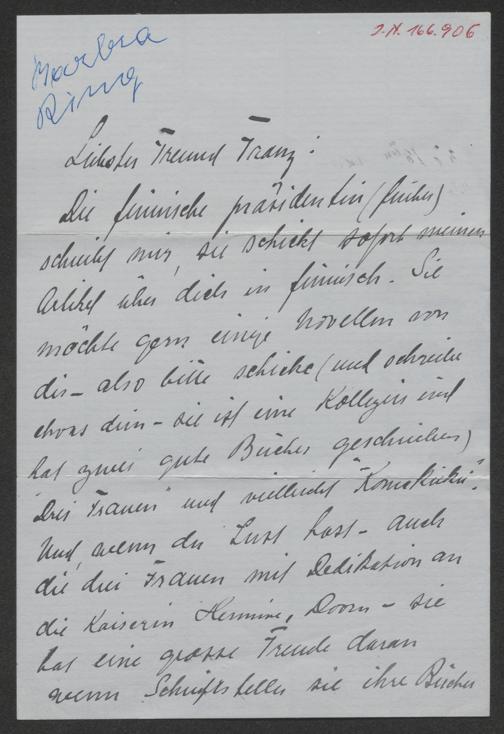 J.N. 166.906
Marbra
Ring
Liebster Freund Franz:
Die finnische präsidentin (früher)
schreibt mir, sie schickt sofort meinen
Artikel über dich in finnisch. Sie
möchte gern einige Novellen von
dir – also bitte schicke (und schreibe
etwas drin – sie ist eine Kollegin und
hat zwei gute Bücher geschrieben)
"Drei Frauen" und vielleicht "Komödiantin".
Und, wenn du Lust hast – auch
die drei Frauen mit Dedikation an
die Kaiserin Hermine, Doorn – sie
hat eine grosse Freude daran
wenn Schriftsteller sie ihre Bücher